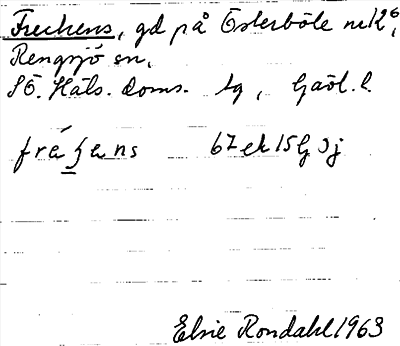 Freckens, gd på Österböle nr 12⁶,
Rengsjö sn,
SÖ. Häls. doms. tg, Gävl. l.
frɛ́ʒens 67 ek 15 G 3j
Elsie Rondahl 1963